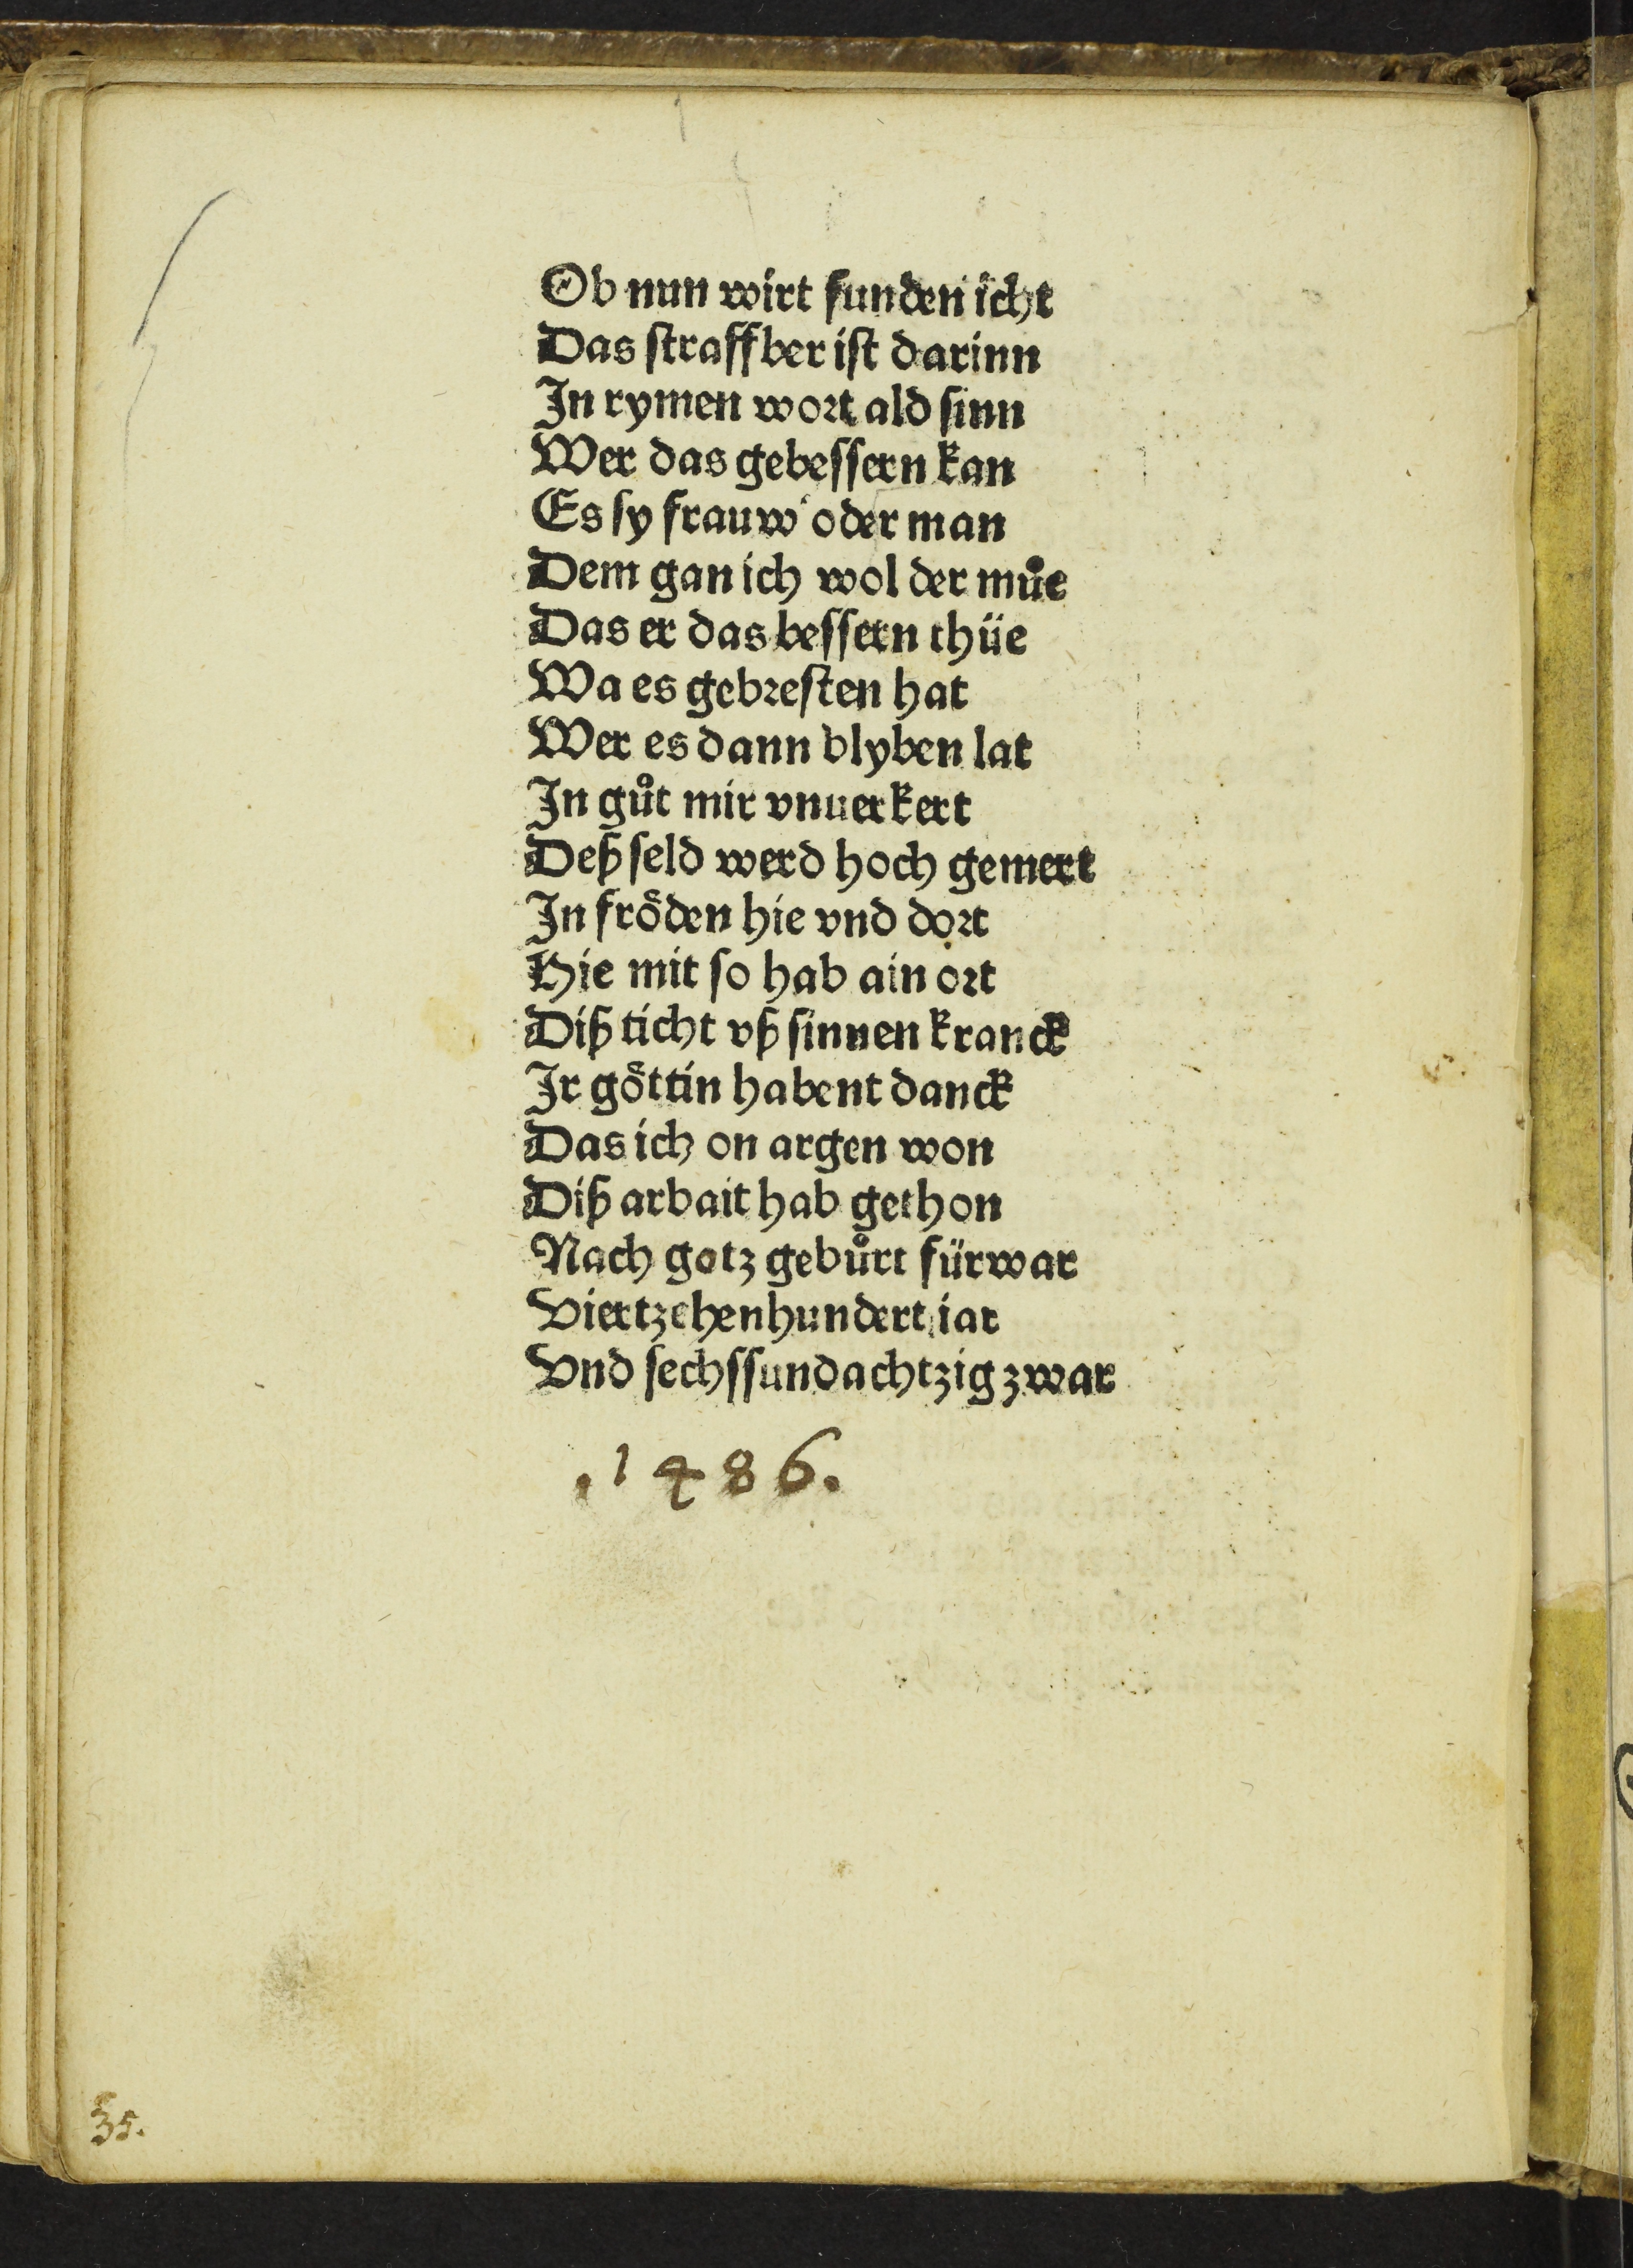 Ob nun wirt funden icht
Das straffber ist darinn
In rymen wort ald sinn
Wer das gebessern kan
Es sy frauw oder man
Dem gan ich wol der muͦe
Das er das bessern thüe
Wa es gebresten hat
Wer es dann blyben lat
In guͦt mir vnuerkert
Deß seld werd hoch gemert
In froͤden hie vnd dort
Hie mit so hab ain ort
Diß ticht vß sinnen kranck
Ir goͤttin habent danck
Das ich on argen won
Diß arbait hab gethon
Nach gotz gebuͦrt fürwar
Viertzehenhundert iar
Vnd sechssundachtzig zwar
.1486.
35.